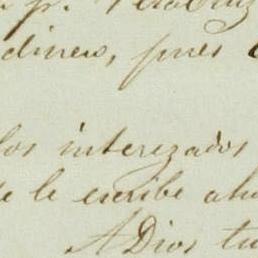 p. Veracruz
dinero, pues
los interezados
le escribe aho
A Dios tu